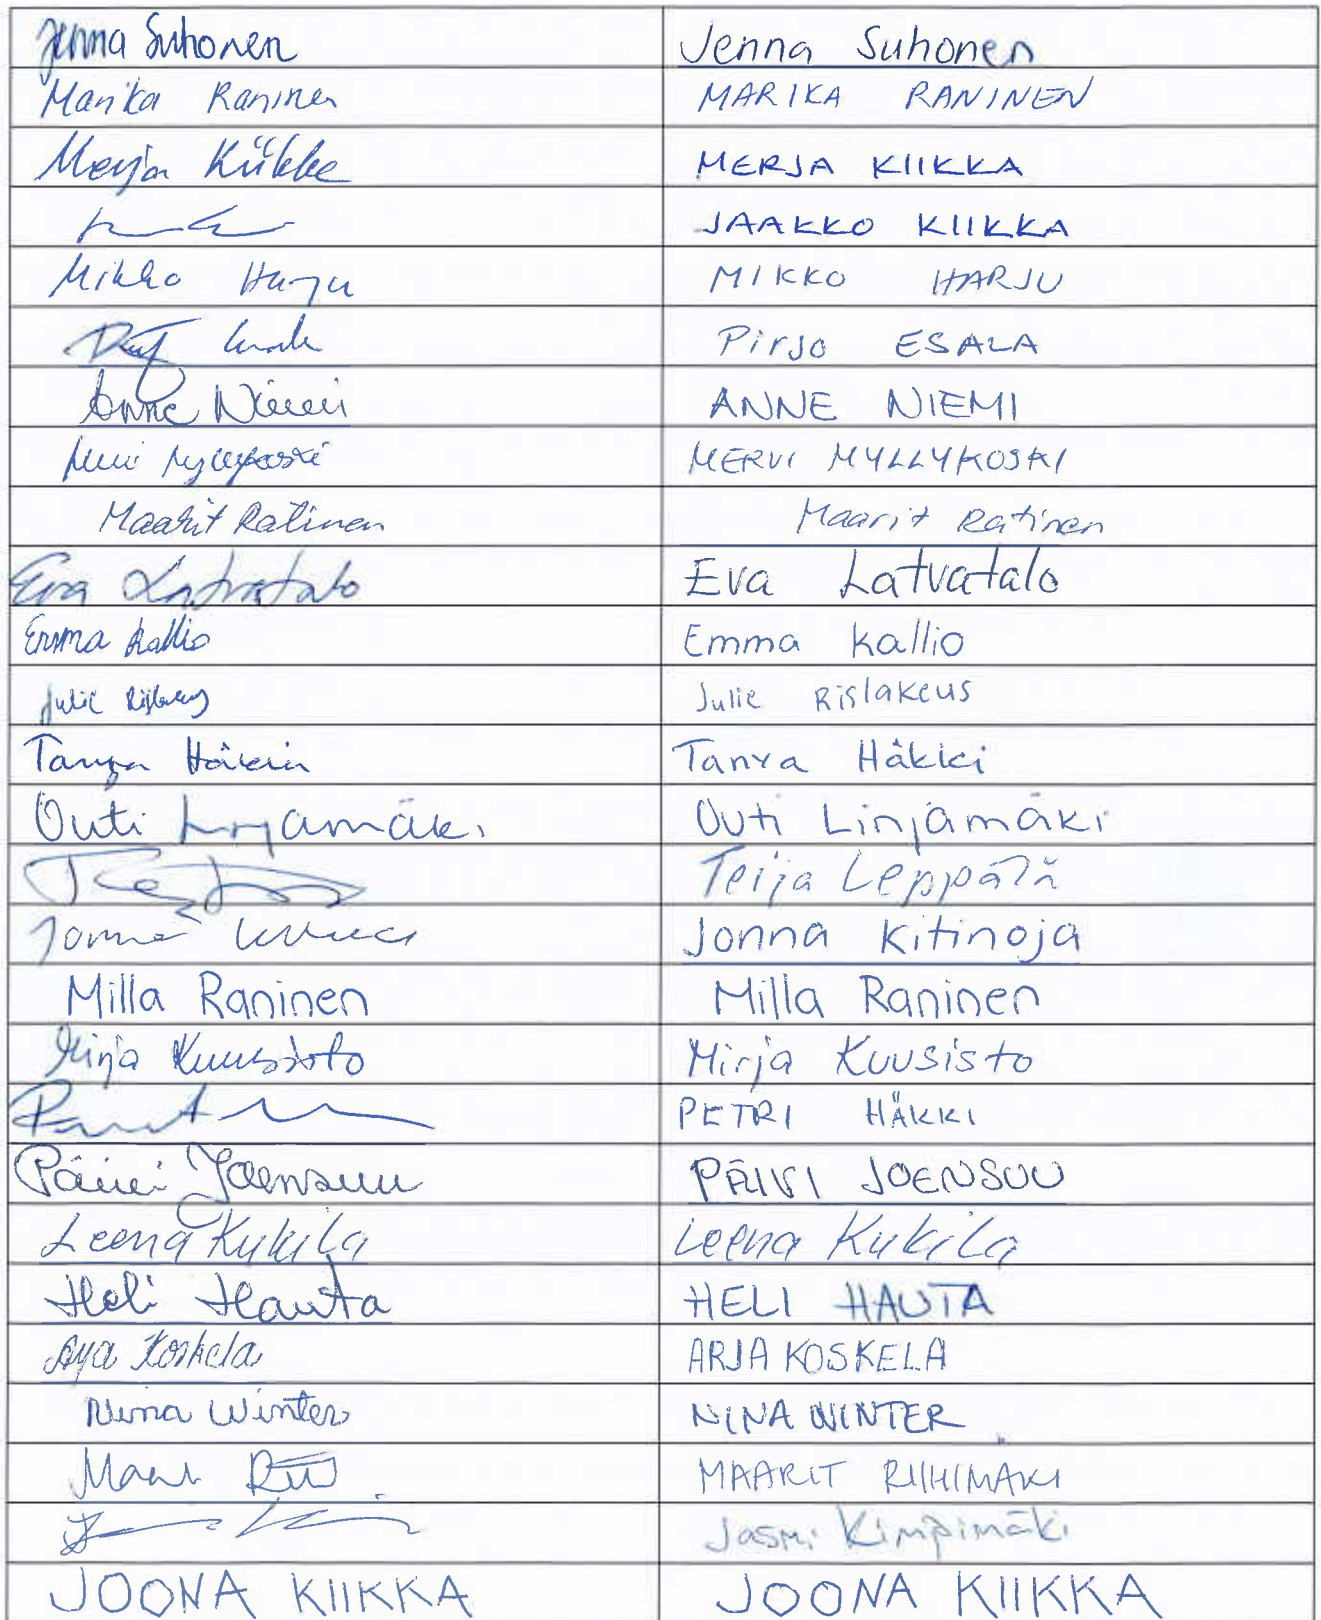 Jenna Suhonen Jenna Suhonen
Marika Raninen MARIKA RANINEN
Merja Kiikka MERJA KIIKKA
JAAKKO KIIKKA
Mikko Harju MIKKO HARJU
PirJo ESALA
Anne Niemi ANNE NIEMI
Mervi Myllykoski MERVI MYLLYKOSKI
Maarit Ratinen Maarit Ratinen
Eva Latvatalo Eva Latvatalo
Emma Kallio Emma Kallio
Julie Rislakeus Julie Rislakeus
Häkki
Outi Linjamäki Outi Linjamäki
Teija Leppälä
Jonna Jonna Kitinoja
Milla Raninen Milla Raninen
Mirja Kuusisto Mirja Kuusisto
PETRI HÄKKI
Päivi Joensuu PÄIVI JOENSUU
Leena Kukila Leena Kukila
Heli Hauta HELI HAUTA
Arja Koskela ARJA KOSKELA
Nina Winter NINA WINTER
MAARIT RIIHIMÄKI
Jasmi Kimpimäki
JOONA KIIKKA JOONA KIIKKA